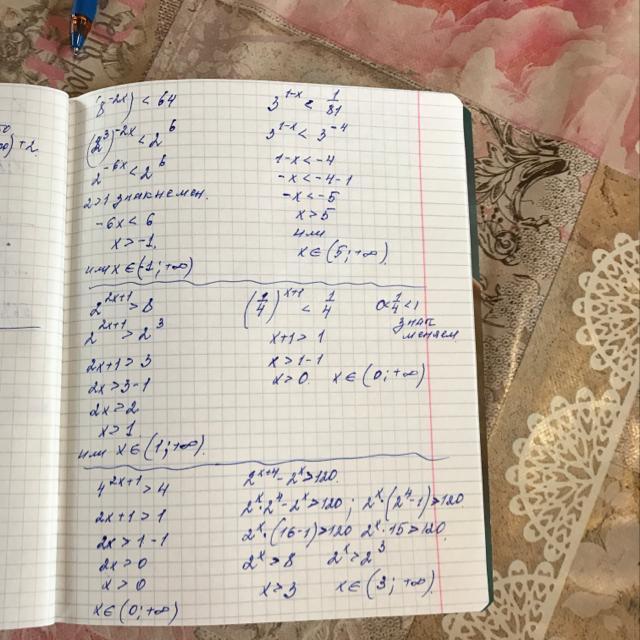 8^(-2x) < 64
(2^3)^(-2x) < 2^6
2^(-6x) < 2^6
2>1 знак не мен.
-6x < 6
x > -1,
или x ∈ (1; +∞)
3^(1-x) < 1/81
3^(1-x) < 3^(-4)
1-x < -4
-x < -4-1
-x < -5
x > 5
или
x ∈ (5; +∞)
2^(2x+1) > 8
2^(2x+1) > 2^3
2x+1 > 3
2x > 3-1
2x > 2
x > 1
или x ∈ (1; +∞).
(1/4)^(x+1) < 1/4 0<1/4<1
знак
меняем
x+1 > 1
x > 1-1
x > 0. x ∈ (0; +∞)
4^(2x+1) > 4
2x+1 > 1
2x > 1-1
2x > 0
x > 0
x ∈ (0; +∞)
2^(x+4) - 2^x > 120.
2^x · 2^4 - 2^x > 120; 2^x · (2^4 - 1) > 120.
2^x · (16-1) > 120 2^x · 15 > 120.
2^x > 8 2^x > 2^3
x > 3 x ∈ (3; +∞).
) + 2.